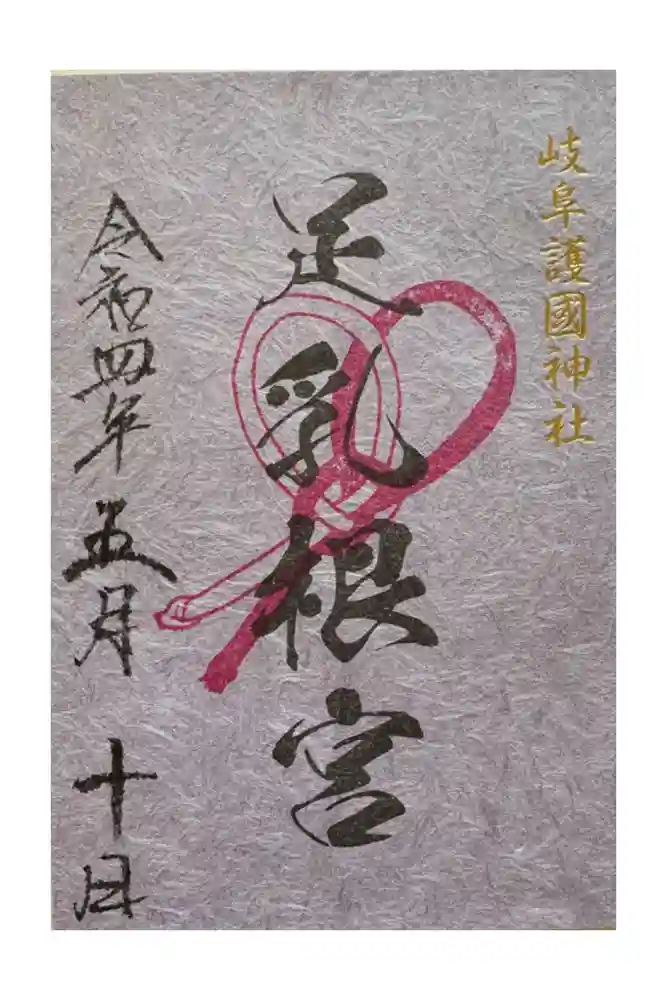 岐阜護國神社
足乳根宮
令和四年五月十日